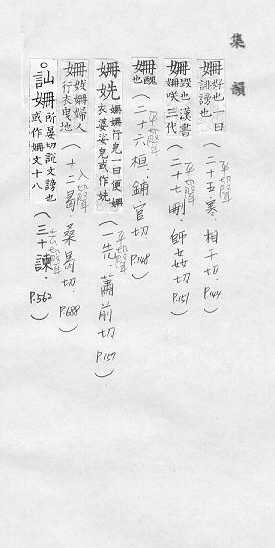 集韻
姍好也一曰誹謗也(二十五寒.相干切P.144)平聲
姍毀也漢書姍咲三代(二十七刪.師姦切P.151)平聲
姍醜也(二十六桓.鋪官切P.148)平聲
姍姺姍姍行皃一曰便姍衣婆娑皃或作姺(一先.蕭前切P.159)平聲
姍妭姍婦人行夫曳地(十二曷桑曷切.P.688)入聲
○訕姍所晏切說文謗也或作姍文十八(三十諫.P.562)去聲